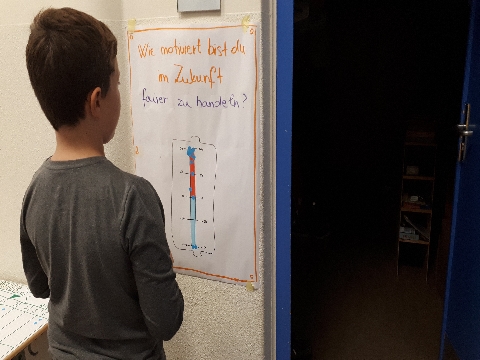 Wie motiviert bist du
in Zukunft
fairer zu handeln?